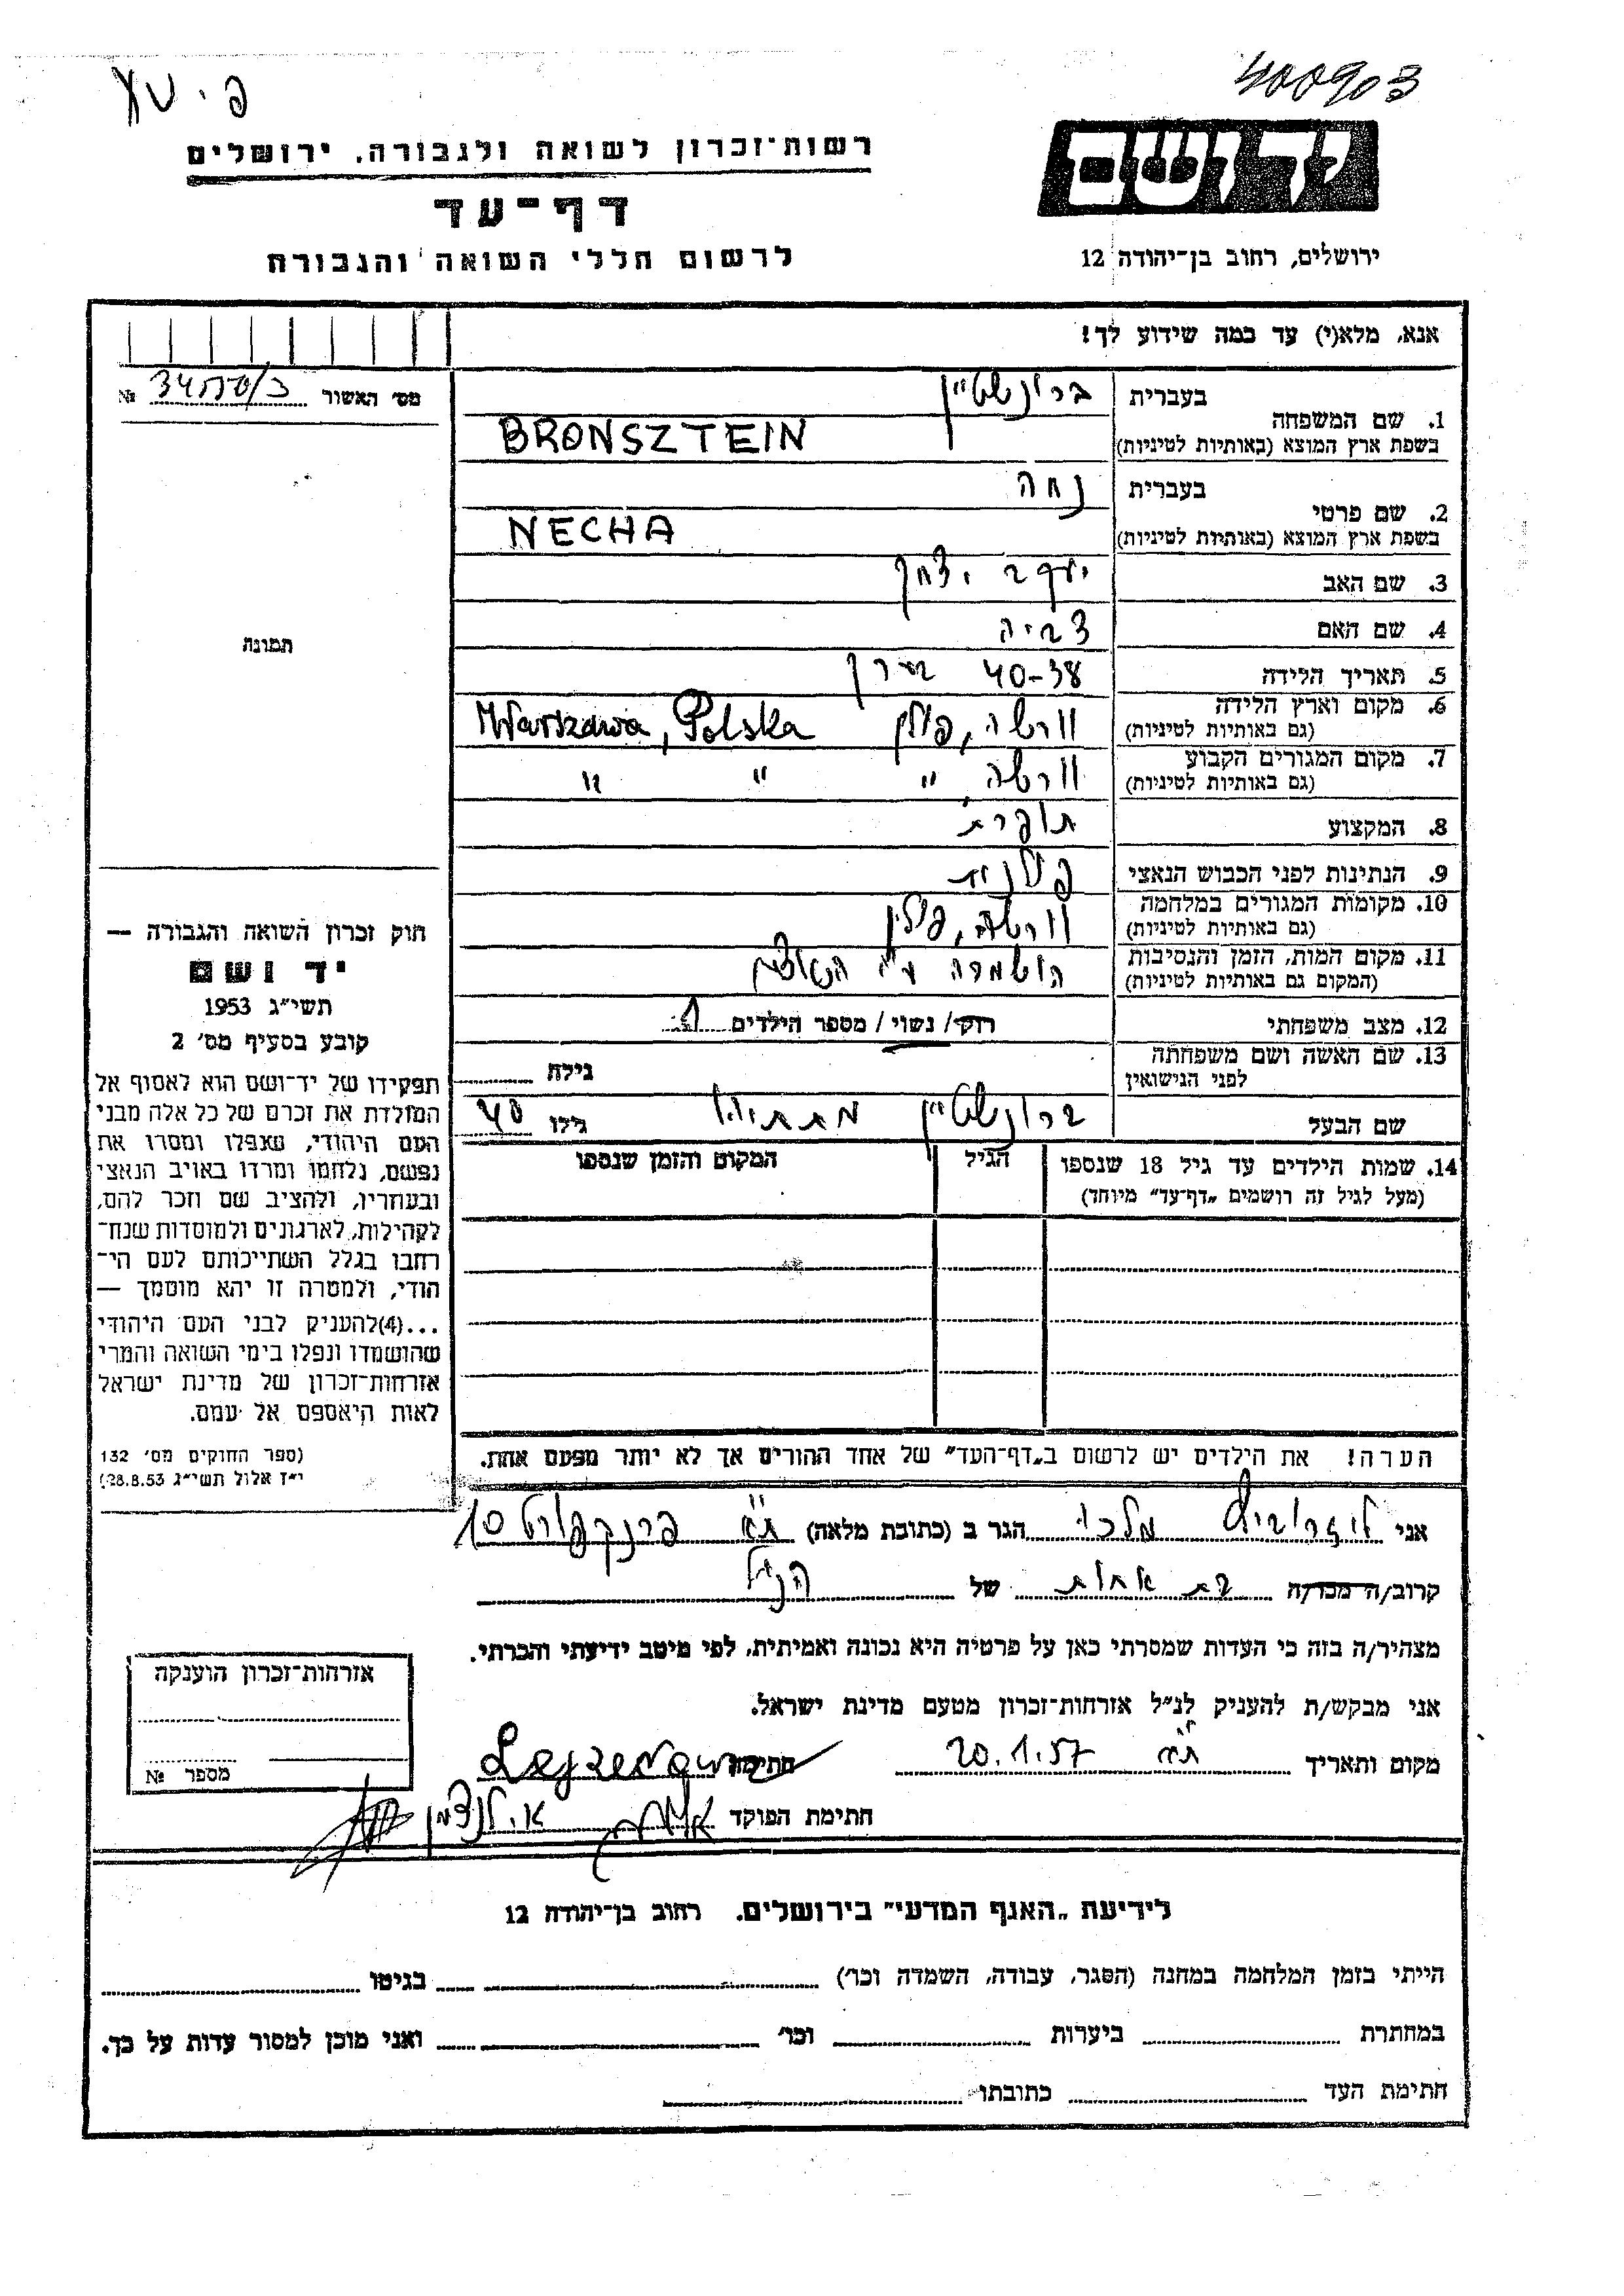 400903
פ. יט
רשות־זכרון לשואה ולגבורה, ירושלים
דף־עד
לרשום חללי השואה והגבורה
יד ושם
ירושלים, רחוב בן־יהודה 12
אנא, מלא(י) עד כמה שידוע לך!
מס׳ האשור №
1. שם המשפחה
בעברית ברונשטיין
בשפת ארץ המוצא (באותיות לטיניות) BRONSZTEIN
2. שם פרטי
בעברית נחה
בשפת ארץ המוצא (באותיות לטיניות) NECHA
3. שם האב יעקב יצחק
4. שם האם צביה
5. תאריך הלידה 40-38 בערך
6. מקום וארץ הלידה (גם באותיות לטיניות) וורשה, פולין Warszawa, Polska
7. מקום המגורים הקבוע (גם באותיות לטיניות) וורשה, " " "
8. המקצוע תופרת
9. הנתינות לפני הכבוש הנאצי פולנית
10. מקומות המגורים במלחמה (גם באותיות לטיניות) וורשה, פולין
11. מקום המות, הזמן והנסיבות (המקום גם באותיות לטיניות) הושמדה ע"י הנאצים
12. מצב משפחתי רוק/ נשוי/ מספר הילדים 1
13. שם האשה ושם משפחתה לפני הנישואין גילה
שם הבעל ברונשטיין מתתיהו גילו 40
14. שמות הילדים עד גיל 18 שנספו
(מעל לגיל זה רושמים „דף־עד״ מיוחד)
הגיל
המקום והזמן שנספו
תמונה
חוק זכרון השואה והגבורה —
יד ושם
תשי״ג 1953
קובע בסעיף מס׳ 2
תפקידו של יד־ושם הוא לאסוף אל
המולדת את זכרם של כל אלה מבני
העם היהודי, שנפלו ומסרו את
נפשם, נלחמו ומרדו באויב הנאצי
ובעוזריו, ולהציב שם וזכר להם,
לקהילות, לארגונים ולמוסדות שנח־
רבו בגלל השתייכותם לעם הי־
הודי, ולמטרה זו יהא מוסמך —
...(4) להעניק לבני העם היהודי
שהושמדו ונפלו בימי השואה והמרי
אזרחות־זכרון של מדינת ישראל
לאות היאספם אל עמם.
(ספר החוקים מס׳ 132
י״ז אלול תשי״ג 28.8.53)
הערה! את הילדים יש לרשום ב„דף־העד״ של אחד ההורים אך לא יותר מפעם אחת.
אני לוזרוביץ מלכו הגר ב (כתובת מלאה) ת"א פרנקפורט 10
קרוב/ה מכר/ה בת אחות של הנ"ל
מצהיר/ה בזה כי העדות שמסרתי כאן על פרטיה היא נכונה ואמיתית, לפי מיטב ידיעתי והכרתי.
אני מבקש/ת להעניק לנ״ל אזרחות־זכרון מטעם מדינת ישראל.
מקום ותאריך ת"א 20.1.57 חתימה
חתימת הפוקד א. לנצמן
אזרחות־זכרון הוענקה
מספר №
לידיעת „האגף המדעי״ בירושלים. רחוב בן־יהודה 12
הייתי בזמן המלחמה במחנה (הסגר, עבודה, השמדה וכו׳) בגיטו
במחתרת ביערות וכו׳ ואני מוכן למסור עדות על כך.
חתימת העד כתובתו